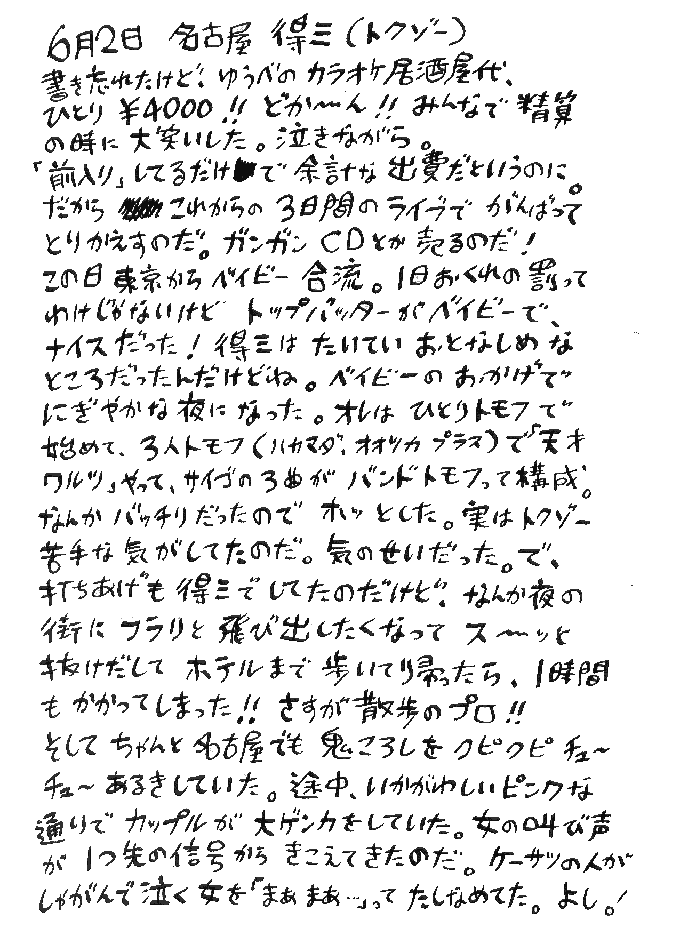 6月2日 名古屋 得三(トクゾー)
書き忘れたけど、ゆうべの カラオケ居酒屋代、
ひとり ¥4000!! どか〜ん!! みんなで 精算
の時に 大笑いした。泣きながら。
「前入り」してるだけで 余計な 出費だというのに。
だから これからの 3日間の ライヴで がんばって
とりかえすのだ。ガンガン CDとか 売るのだ!
この日 東京から ベイビー 合流。1日おくれの 割って
わけじゃないけど トップバッターが ベイビーで、
ナイスだった! 得三は たいてい おとなしめ な
ところだったんだけどね。ベイビーの おかげで
にぎやかな 夜に なった。オレは ひとりトモフ で
始めて、3人トモフ(ハカマダ、オオツカ プラス)で「天才
ワルツ」やって、サイゴの 3曲が バンドトモフって 構成。
なんか バッチリだったので ホッ とした。実は トクゾー
苦手な 気がしてたのだ。気のせいだった。で、
打ちあげも 得三で してたのだけど、なんか夜の
街に フラリと 飛び出したくなって ス〜ッと
抜けだして ホテルまで 歩いて帰ったら、1時間
も かかってしまった!! さすが 散歩の プロ!!
そして ちゃんと 名古屋でも 鬼ころしを クピクピ チュ〜
チュ〜 あるきしていた。途中、いかがわしい ピンクな
通りで カップルが 大ゲンカをしていた。女の叫び声
が 1つ先の信号から きこえてきたのだ。ケーサツの人が
しゃがんで 泣く 女を「まぁ まぁ…」って たしなめてた。よし。!